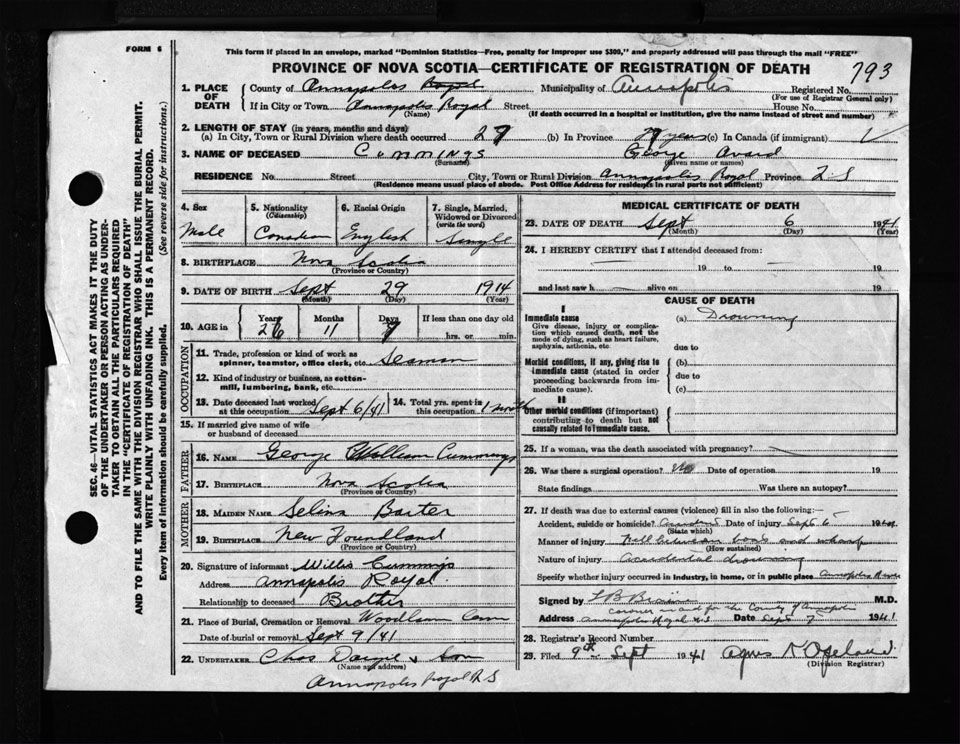 FORM 6
This form if placed in an envelope, marked "Dominion Statistics—Free, penalty for improper use $300," and properly addressed will pass through the mail "FREE"
PROVINCE OF NOVA SCOTIA—CERTIFICATE OF REGISTRATION OF DEATH
793
SEC. 46—VITAL STATISTICS ACT MAKES IT THE DUTY
OF THE UNDERTAKER OR PERSON ACTING AS UNDER-
TAKER TO OBTAIN ALL THE PARTICULARS REQUIRED
IN THE "CERTIFICATE OF REGISTRATION OF DEATH"
AND TO FILE THE SAME WITH THE DIVISION REGISTRAR WHO SHALL ISSUE THE BURIAL PERMIT.
WRITE PLAINLY WITH UNFADING INK. THIS IS A PERMANENT RECORD.
Every item of information should be carefully supplied. (See reverse side for instructions.)
1. PLACE OF DEATH
County of Annapolis Royal Municipality of Annapolis Registered No.
(For use of Registrar General only)
If in City or Town Annapolis Royal Street House No.
(Name) (If death occurred in a hospital or institution, give the name instead of street and number)
2. LENGTH OF STAY (in years, months and days)
(a) In City, Town or Rural Division where death occurred 27 (b) In Province 27 years (c) In Canada (if immigrant)
3. NAME OF DECEASED Cummings George Avard
(Surname) (Given name or names)
RESIDENCE No. Street City, Town or Rural Division Annapolis Royal Province N.S
(Residence means usual place of abode. Post Office Address for residents in rural parts not sufficient)
4. Sex Male
5. Nationality (Citizenship) Canadian
6. Racial Origin English
7. Single, Married, Widowed or Divorced (write the word) Single
8. BIRTHPLACE Nova Scotia
(Province or Country)
9. DATE OF BIRTH Sept 29 1914
(Month) (Day) (Year)
10. AGE in Years 26 Months 11 Days 9 If less than one day old hrs. or min.
OCCUPATION
11. Trade, profession or kind of work as spinner, teamster, office clerk, etc. Seaman
12. Kind of industry or business, as cotton-mill, lumbering, bank, etc.
13. Date deceased last worked at this occupation Sept 6/41
14. Total yrs. spent in this occupation 1 month
15. If married give name of wife or husband of deceased
FATHER
16. NAME George William Cummings
17. BIRTHPLACE Nova Scotia
(Province or Country)
MOTHER
18. MAIDEN NAME Selina Barter
19. BIRTHPLACE New Foundland
(Province or Country)
20. Signature of informant Willis Cummings
Address Annapolis Royal
Relationship to deceased Brother
21. Place of Burial, Cremation or Removal Woodlawn Cem
Date of burial or removal Sept 9/41
22. UNDERTAKER Chas & Son
(Name and address)
Annapolis Royal N S
MEDICAL CERTIFICATE OF DEATH
23. DATE OF DEATH Sept 6 1941
(Month) (Day) (Year)
24. I HEREBY CERTIFY that I attended deceased from:
19 to 19
and last saw h alive on 19
CAUSE OF DEATH
I
Immediate cause (a) Drowning
Give disease, injury or complication which caused death, not the mode of dying, such as heart failure, asphyxia, asthenia, etc.
due to
Morbid conditions, if any, giving rise to immediate cause (stated in order proceeding backwards from immediate cause).
(b)
due to
(c)
II
Other morbid conditions (if important) contributing to death but not causally related to immediate cause.
25. If a woman, was the death associated with pregnancy?
26. Was there a surgical operation? No Date of operation 19
State findings Was there an autopsy?
27. If death was due to external causes (violence) fill in also the following:—
Accident, suicide or homicide? Accident Date of injury Sept 6 1941
(State which)
Manner of injury Fell between boat and wharf
(How sustained)
Nature of injury Accidental drowning
Specify whether injury occurred in industry, in home, or in public place Annapolis
Signed by M.D.
Coroner in and for the County of Annapolis
Address Annapolis Royal N.S Date Sept 7 1941
28. Registrar's Record Number
29. Filed 9th Sept 1941 Agnes K Copeland
(Division Registrar)